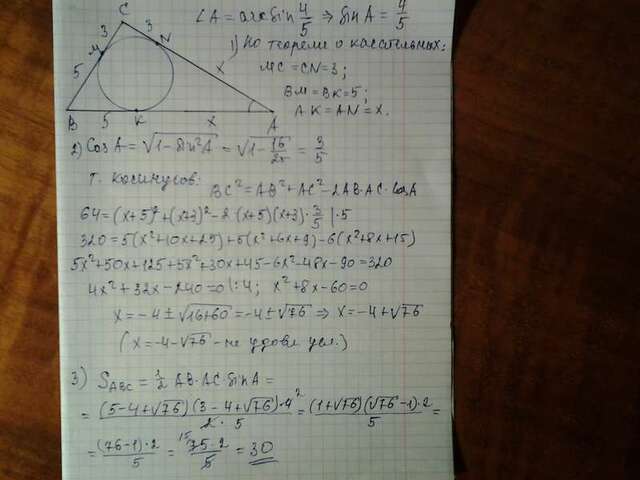 ∠A = arcsin 4/5 ⇒ sin A = 4/5
1) По теореме о касательных:
MC = CN = 3;
BM = BK = 5;
AK = AN = x.
C
3 3
M N
5 x
B 5 K x A
2) Cos A = √(1 - Sin²A) = √(1 - 16/25) = 3/5
т. косинусов: BC² = AB² + AC² - 2AB·AC·cos A
64 = (x+5)² + (x+3)² - 2(x+5)(x+3)·3/5 |·5
320 = 5(x²+10x+25) + 5(x²+6x+9) - 6(x²+8x+15)
5x²+50x+125+5x²+30x+45-6x²-48x-90 = 320
4x²+32x-240=0 |:4; x²+8x-60=0
x = -4 ± √(16+60) = -4 ± √76 ⇒ x = -4+√76
(x = -4-√76 - не удовл. усл.)
3) S_ABC = 1/2 AB·AC·Sin A =
= (5-4+√76)(3-4+√76)·4² / 2·5 = (1+√76)(√76-1)·2 / 5 =
= (76-1)·2 / 5 = 15 75·2 / 5 = 30